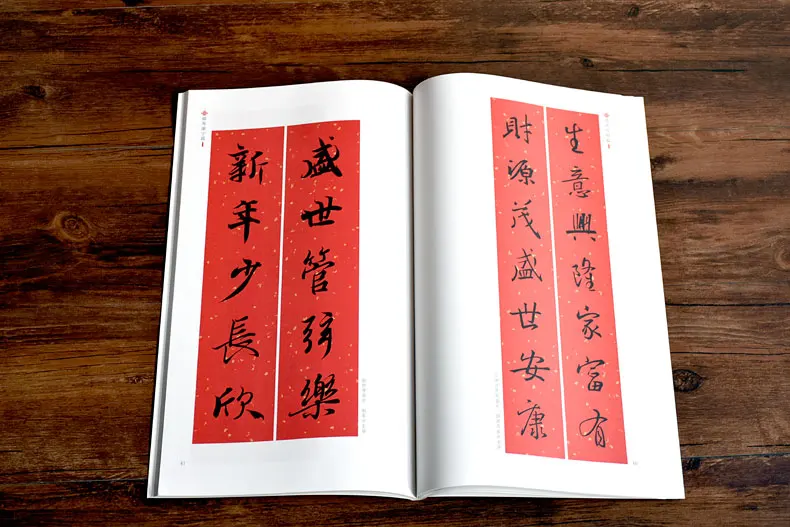 生意興隆家富有
財源茂盛世安康
盛世管弦樂
新年少長欣